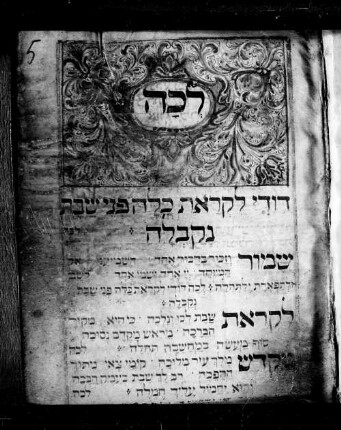 5
לכה
דודי לקראת כלה פני שבת
נקבלה
שמור וזכור בדיבור אחד השמיענו אל
המיוחד יי אחד ושמו אחד לשם
ולתפארת ולתהלה לכה דודי לקראת כלה פני שבת
נקבלה
לקראת שבת לכו ונלכה כי היא מקור
הברכה מראש מקדם נסוכה
סוף מעשה במחשבה תחלה לכה
מקדש מלך עיר מלוכה קומי צאי מתוך
ההפכה רב לך שבת בעמק הבכא
והוא יחמול עליך חמלה לכה